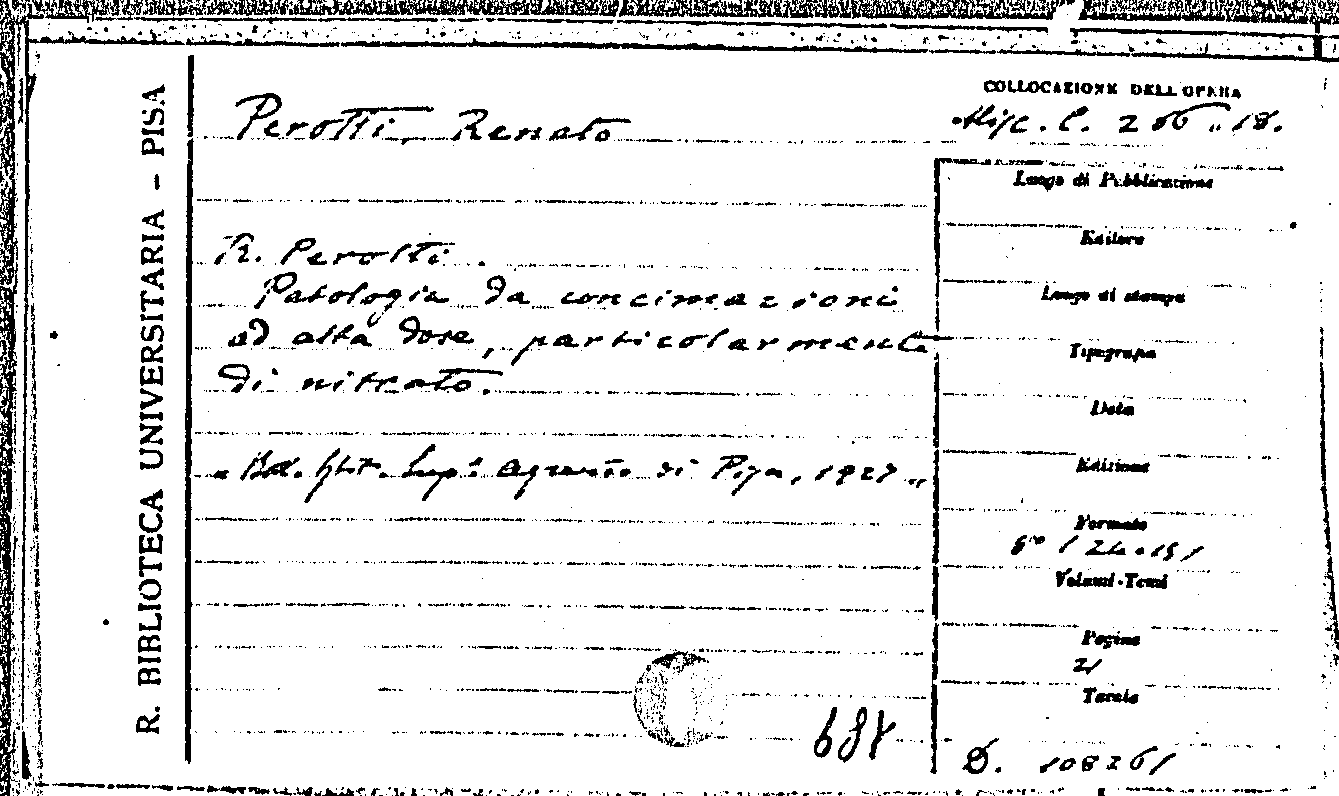 R. BIBLIOTECA UNIVERSITARIA - PISA
Perotti, Renato
COLLOCAZIONE DELL'OPERA
Misc. C. 206 .. 18.
R. Perotti.
Patologia da concimazioni
ad alta dose, particolarmente
di nitrato.
Ist. Sup. Agrario di Pisa, 1927 "
Luogo di Pubblicazione
Editore
Luogo di stampa
Tipografo
Data
Edizione
Formato
8°
Volumi-Tomi
Pagine
21
Tavole
D. 108261